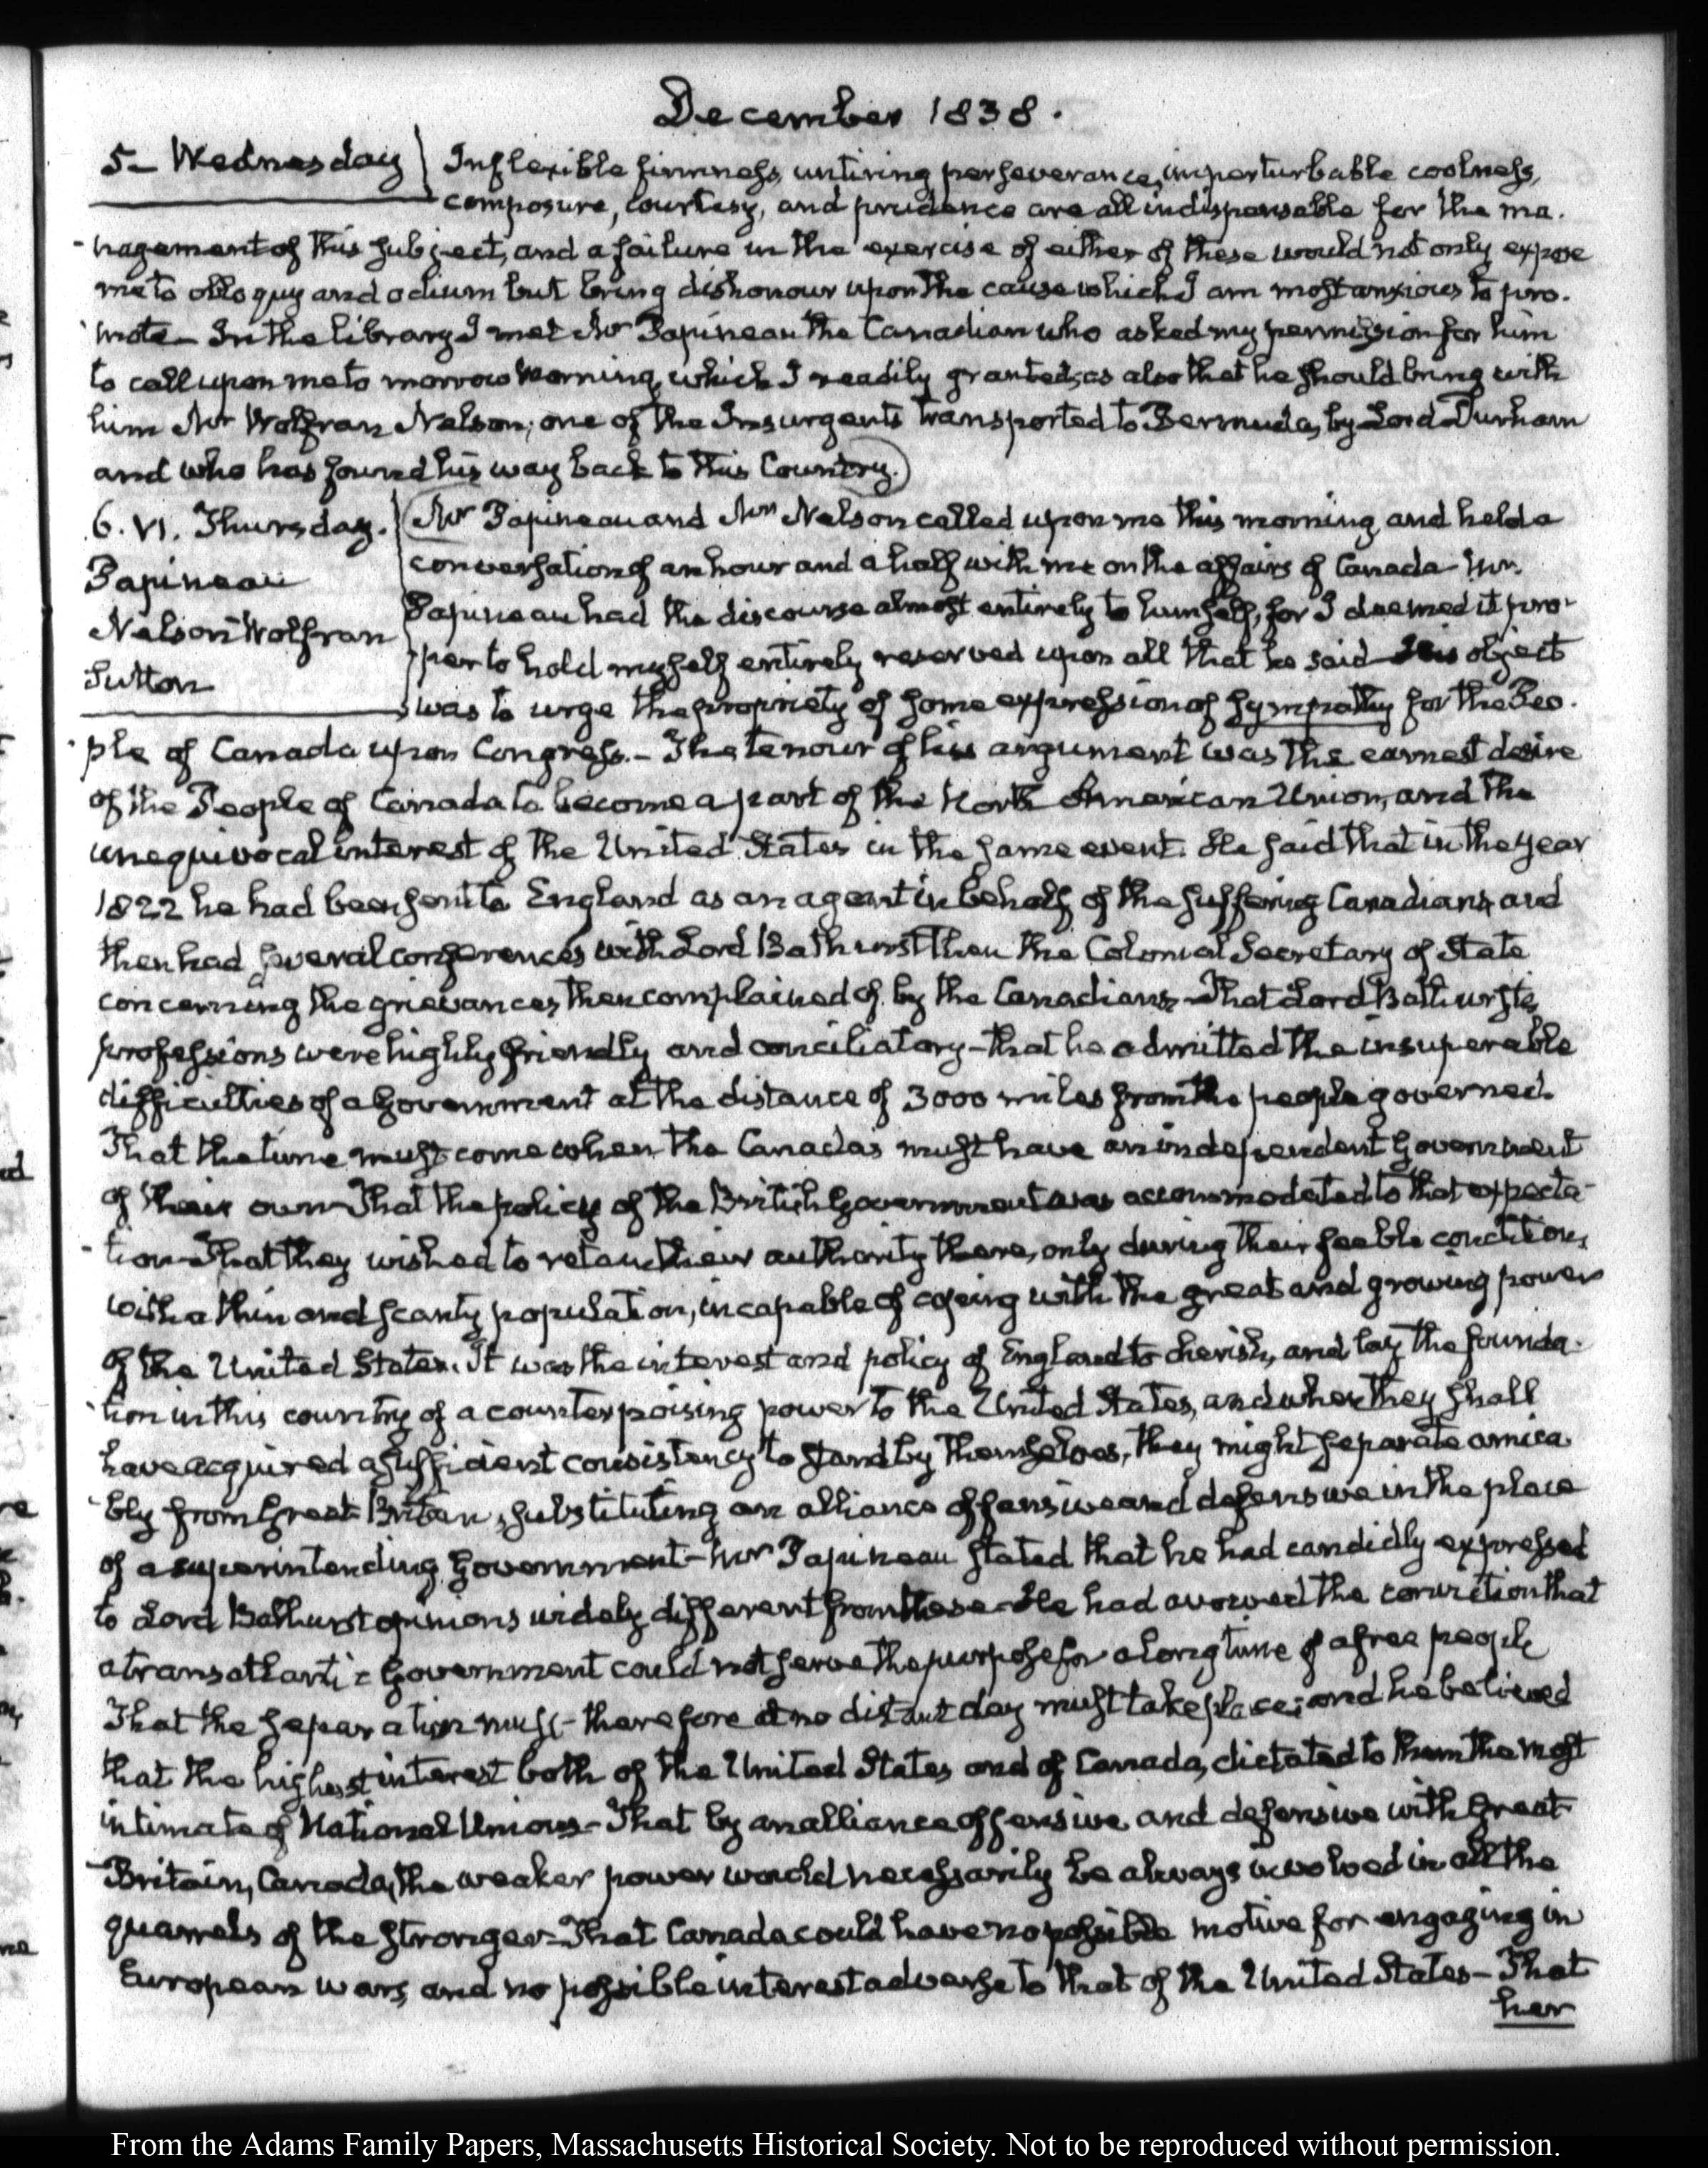 December 1838.
5– Wednesday
Inflexible firmness, untiring perseverance, imperturbable coolness,
composure, courtesy, and prudence are all indispensable for the ma-
-nagement of this subject, and a failure in the exercise of either of these would not only expose
me to obloquy and odium but bring dishonour upon the cause which I am most anxious to pro-
-mote– In the library I met Mr Papineau the Canadian who asked my permission for him
to call upon me to morrow morning, which I readily granted; as also that he should bring with
him Mr Wolfran Nelson, one of the Insurgents transported to Bermuda, by Lord Durham
and who has found his way back to this Country.)
6. VI. Thursday.
Papineau
Nelson Wolfran
Sutton
(Mr Papineau and Mr Nelson called upon me this morning, and held a
conversation of an hour and a half with me on the affairs of Canada– Mr.
Papineau had the discourse almost entirely to himself, for I deemed it pro-
-per to hold myself entirely reserved upon all that he said– His object
was to urge the propriety of some expression of sympathy for the Peo-
-ple of Canada upon Congress.– The tenour of his argument was the earnest desire
of the People of Canada to become a part of the North American Union, and the
unequivocal interest of the United States in the same event. He said that in the year
1822 he had been sent to England as an agent in behalf of the suffering Canadians, and
then had several conferences with Lord Bathurst then the Colonial Secretary of State
concerning the grievances then complained of by the Canadians– That Lord Bathurst's
professions were highly friendly and conciliatory– that he admitted the insuperable
difficulties of a Government at the distance of 3000 miles from the people governed.
That the time must come when the Canadas must have an independent Government
of their own– That the policy of the British Government was accommodated to that expecta-
-tion– That they wished to retain their authority there, only during their feeble condition,
with a thin and scanty population, incapable of coping with the great and growing power
of the United States. It was the interest and policy of England to cherish, and lay the founda-
-tion in this country of a counterpoising power to the United States, and when they shall
have acquired a sufficient consistency to stand by themselves, they might separate amica-
-bly from Great Britain, substituting an alliance offensive and defensive in the place
of a superintending Government– Mr Papineau stated that he had candidly expressed
to Lord Bathurst opinions widely different from these– He had avowed the conviction that
a transatlantic Government could not serve the purpose for a long time of a free people
That the separation must– therefore at no distant day must take place; and he believed
that the highest interest both of the United States and of Canada, dictated to them the most
intimate of National Unions– That by an alliance offensive and defensive with Great
Britain, Canada, the weaker power would necessarily be always involved in all the
quarrels of the stronger– That Canada could have no possible motive for engaging in
European wars, and no possible interest adverse to that of the United States– That
her
From the Adams Family Papers, Massachusetts Historical Society. Not to be reproduced without permission.